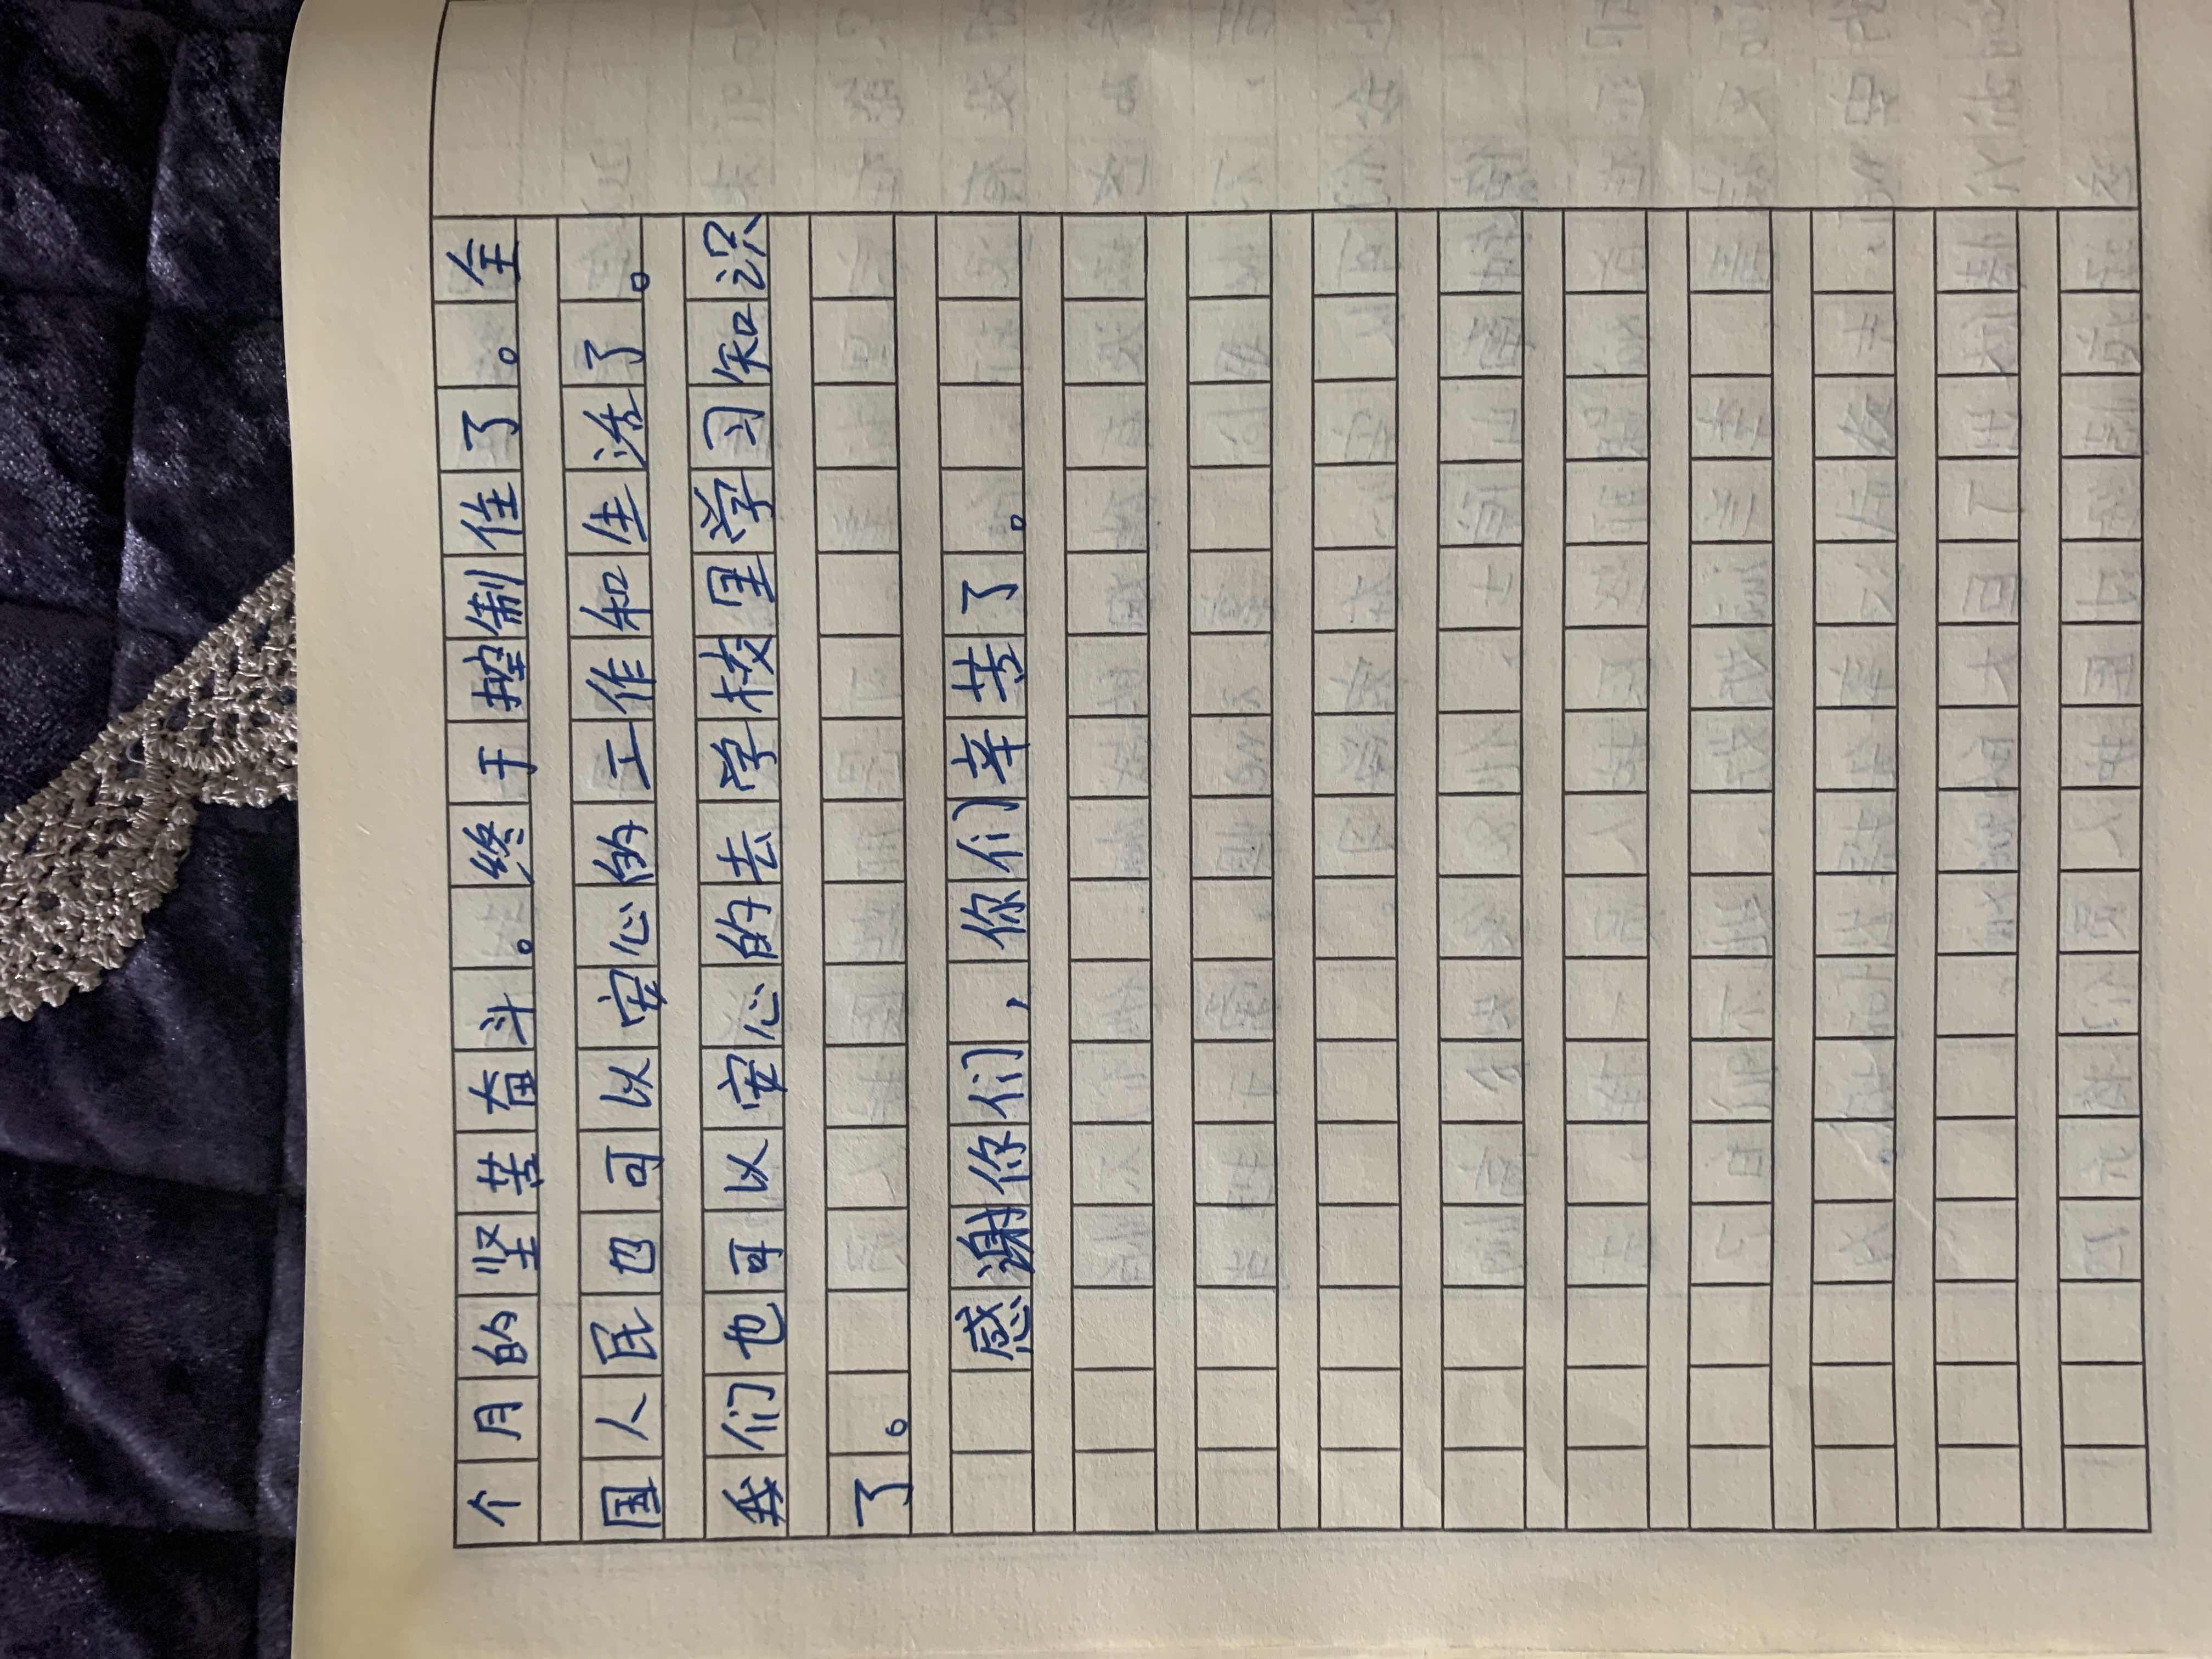 个月的坚苦奋斗。终于控制住了。全
国人民也可以安心的工作和生活了。
我们也可以安心的去学校里学习知识
了。
感谢你们，你们辛苦了。